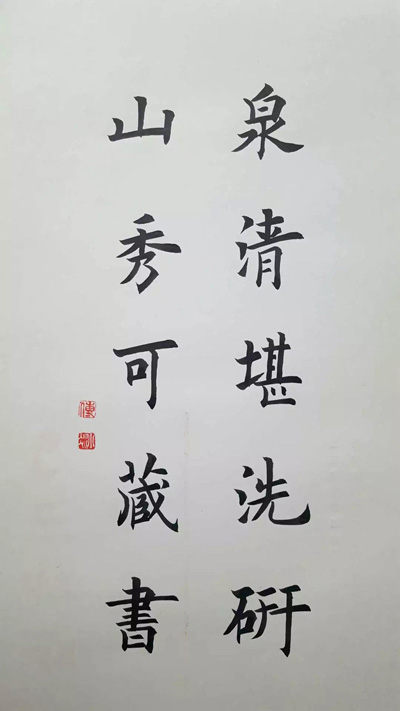 泉清堪洗研
山秀可藏書